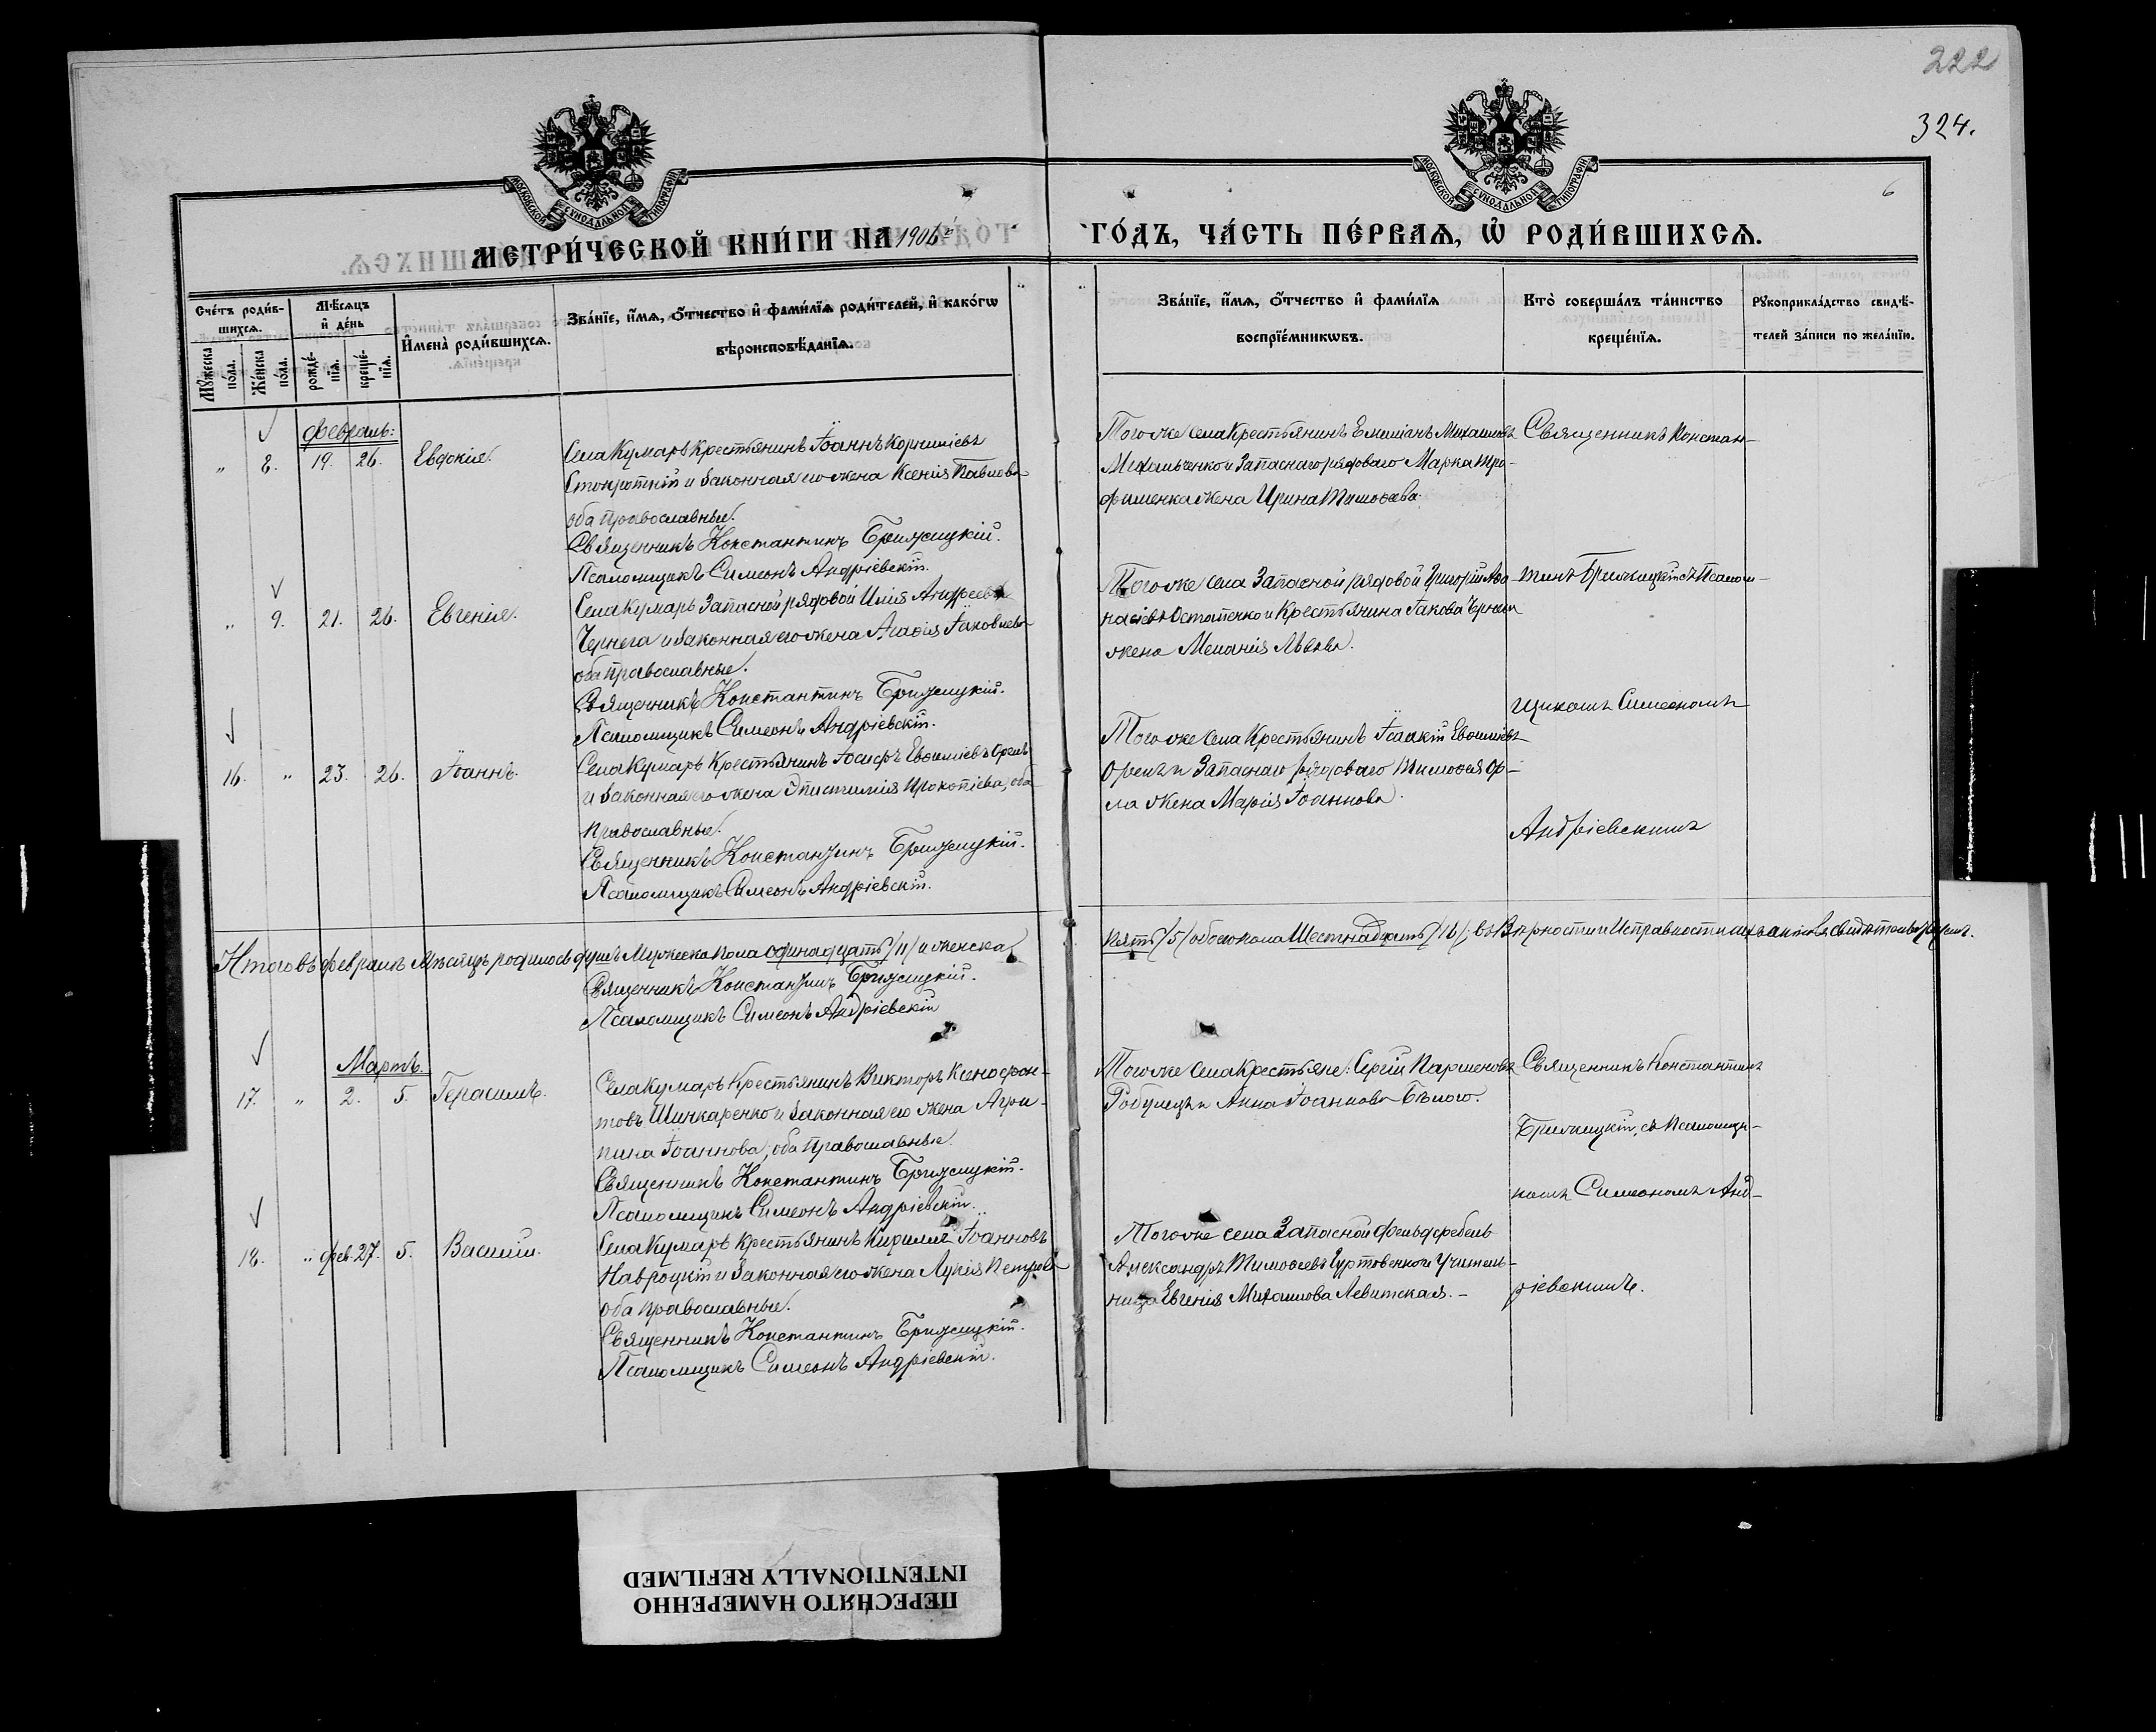 222
324.
6
МОСКОВСКОЙ СѴНОДАЛЬНОЙ ТИПОГРАФІИ
МОСКОВСКОЙ СѴНОДАЛЬНОЙ ТИПОГРАФІИ
МЕТРИ́ЧЕСКОЙ КНИ́ГИ НА 1906й
ГО́ДЪ, ЧА́СТЬ ПЕ́РВАѦ, Ѡ҆ РОДИ́ВШИХСѦ.
Сче́тъ роди́в-
шихсѧ.
Мꙋ́жеска по́ла.
Же́нска по́ла.
Мѣ́сѧцъ
и҆ де́нь
рожде́-
нїѧ.
креще́-
нїѧ.
И҆мена̀ роди́вшихсѧ.
Зва́нїе, и҆́мѧ, ѻ҆́тчество и҆ фами́лїѧ роди́телей, и҆ како́гѡ
вѣроисповѣ́данїѧ.
Зва́нїе, и҆́мѧ, ѻ҆́тчество и҆ фами́лїѧ
воспрїе́мникѡвъ.
Кто̀ соверша́лъ та́инство
креще́нїѧ.
Рꙋкоприкла́дство свидѣ́-
телей за́писи по жела́нїю.
февраль:
" 8. 19. 26. Евдокія.
Села Кумаръ Крестьянинъ Іоаннъ Корниліевъ
Стократній и законная его жена Ксенія Павлова
оба православные.
Священникъ Константинъ Брижицкій.
Псаломщикъ Симеонъ Андріевскій.
Того же села Крестьянинъ Емиліанъ Михаиловъ
Михальченко и Запаснаго рядоваго Марка Тро-
фименка жена Ирина Тимоѳеева.
Священникъ Констан-
" 9. 21. 26. Евгенія.
Села Кумаръ Запасной рядовой Илія Андреевъ
Чернега и законная его жена Агаѳія Іаковлева
оба православные.
Священникъ Константинъ Брижицкій.
Псаломщикъ Симеонъ Андріевскій.
Того же села Запасной рядовой Григорій Аѳа-
насіевъ Остапенко и Крестьянина Іакова
жена Меланія Львова.
тинъ Брижицкій съ Псалом-
щикомъ Симеономъ
16. " 23. 26. Іоаннъ.
Села Кумаръ Крестьянинъ Іосифъ Евѳиміевъ Орелъ
и законная его жена Епистимія Прокопіева, оба
православные.
Священникъ Константинъ Брижицкій.
Псаломщикъ Симеонъ Андріевскій.
Того же села Крестьянинъ Исаакій Евѳиміевъ
Орелъ и Запаснаго рядоваго Тимоѳея Ор-
ла жена Марія Іоаннова.
Андріевскимъ
Итого въ февралѣ мѣсяцѣ родилось душъ Мужеска пола одинадцать /11/ и женска
пять /5/ обоего пола Шестнадцать /16/; въ Вѣрности и Исправности актовъ свидѣтельствуемъ.
Священникъ Константинъ Брижицкій.
Псаломщикъ Симеонъ Андріевскій
Мартъ.
17. " 2. 5. Герасимъ.
Села Кумаръ Крестьянинъ Викторъ Ксенофон-
товъ Шинкаренко и законная его жена Агри-
пина Іоаннова, оба православные.
Священникъ Константинъ Брижицкій.
Псаломщикъ Симеонъ Андріевскій.
Того же села Крестьяне: Сергій Парѳеновъ
Робулецъ и Анна Іоаннова Бѣлого.
Священникъ Константинъ
Брижицкій, съ Псаломщи-
комъ Симеономъ Анд-
18. " фев. 27. 5. Василій.
Села Кумаръ Крестьянинъ Кириллъ Іоанновъ
Навроцкій и законная его жена Лукія Петрова
оба православные.
Священникъ Константинъ Брижицкій.
Псаломщикъ Симеонъ Андріевскій.
Того же села Запасной фельдфебель
Александръ Тимоѳеевъ Гуртовенко и Учитель-
ница Евгенія Михаилова Левитская. -
ріевскимъ.
ПЕРЕСНЯТО НАМЕРЕННО
INTENTIONALLY REFILMED